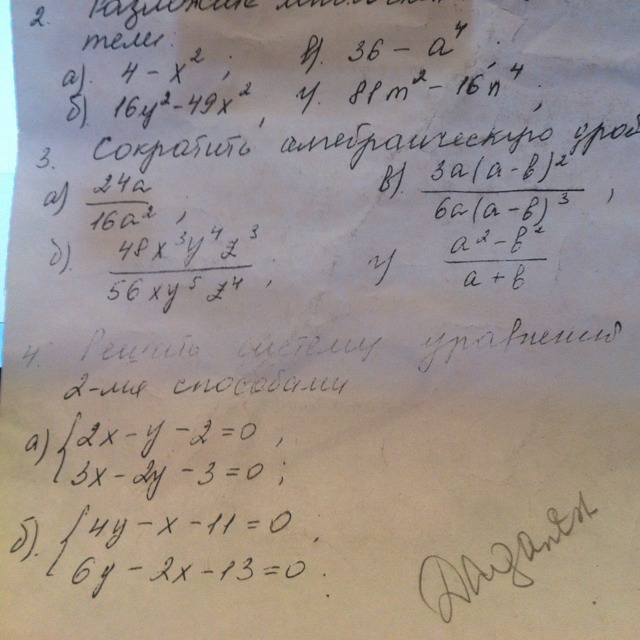 2. Разложить
тели.
а). 4 - x², в). 36 - a⁴,
б) 16y² - 49x², г). 81m² - 16n⁴.
3. Сократить алгебраическую дроб
а) 24a/16a², в). 3a(a-b)²/6a(a-b)³,
б). 48x³y⁴z³/56xy⁵z⁴, г) a²-b²/a+b
4. Решить систему уравнений
2-мя способами
а) { 2x - y - 2 = 0,
3x - 2y - 3 = 0;
б). { 4y - x - 11 = 0,
6y - 2x - 13 = 0.